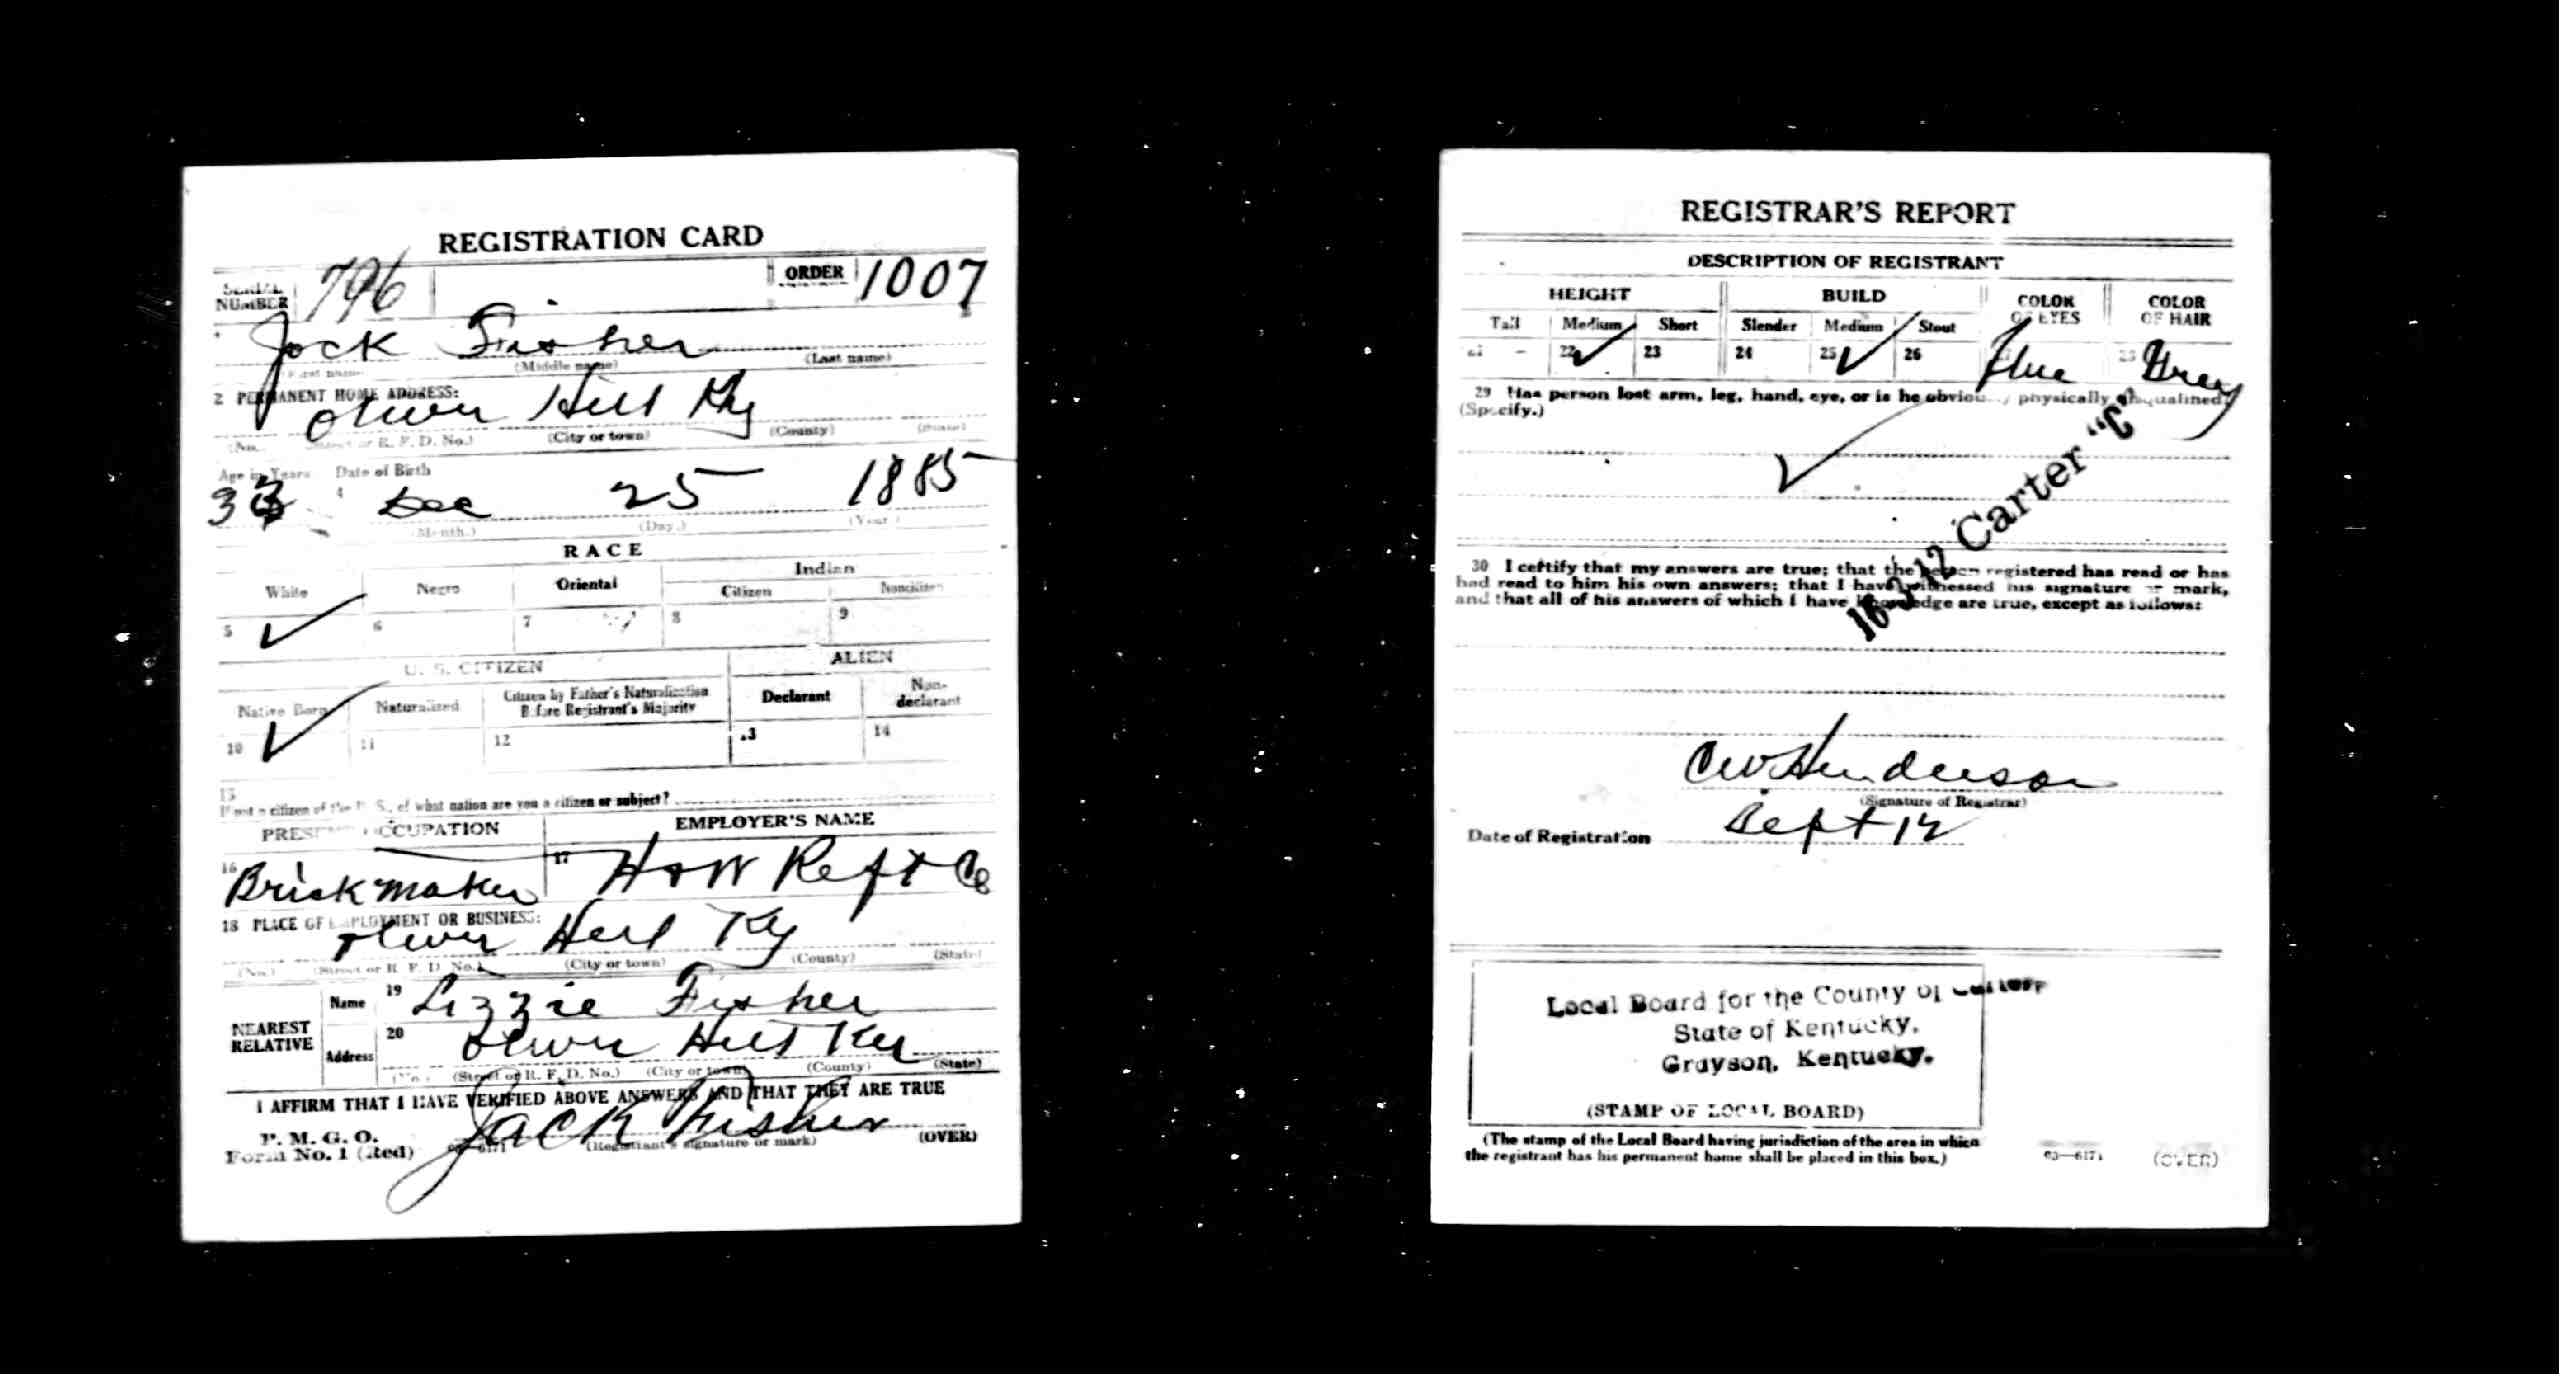 REGISTRATION CARD
SERIAL NUMBER 796 ORDER 1007
Jack Fisher
(First name) (Middle name) (Last name)
2 PERMANENT HOME ADDRESS:
Olive Hill Ky
(No.) (Street or R. F. D. No.) (City or town) (County) (State)
Age in Years Date of Birth
33 4 Dec 25 1885
(Month.) (Day.) (Year.)
RACE
White Negro Oriental Indian
Citizen Noncitizen
5 6 7 8 9
U. S. CITIZEN ALIEN
Native Born Naturalized Citizen by Father's Naturalization Before Registrant's Majority Declarant Non-declarant
10 11 12 13 14
15
If not a citizen of the U. S., of what nation are you a citizen or subject?
PRESENT OCCUPATION EMPLOYER'S NAME
16 Brick maker 17 H & W Reft Co
18 PLACE OF EMPLOYMENT OR BUSINESS:
Olive Hill Ky
(No.) (Street or R. F. D. No.) (City or town) (County) (State)
NEAREST RELATIVE
Name 19 Lizzie Fisher
Address 20 Olive Hill Ky
(No.) (Street or R. F. D. No.) (City or town) (County) (State)
I AFFIRM THAT I HAVE VERIFIED ABOVE ANSWERS AND THAT THEY ARE TRUE
P. M. G. O.
Form No. 1 (Red) Jack Fisher
(Registrant's signature or mark) (OVER)
REGISTRAR'S REPORT
DESCRIPTION OF REGISTRANT
HEIGHT BUILD COLOR OF EYES COLOR OF HAIR
Tall Medium Short Slender Medium Stout
21 22 23 24 25 26 Grey
29 Has person lost arm, leg, hand, eye, or is he obviously physically disqualified?
(Specify.)
16-3-12 Carter "C"
30 I certify that my answers are true; that the person registered has read or has
had read to him his own answers; that I have witnessed his signature or mark,
and that all of his answers of which I have knowledge are true, except as follows:
CW Henderson
(Signature of Registrar)
Date of Registration Sept 12
Local Board for the County of Carter
State of Kentucky,
Grayson, Kentucky.
(STAMP OF LOCAL BOARD)
(The stamp of the Local Board having jurisdiction of the area in which
the registrant has his permanent home shall be placed in this box.)
03—6171 (OVER)